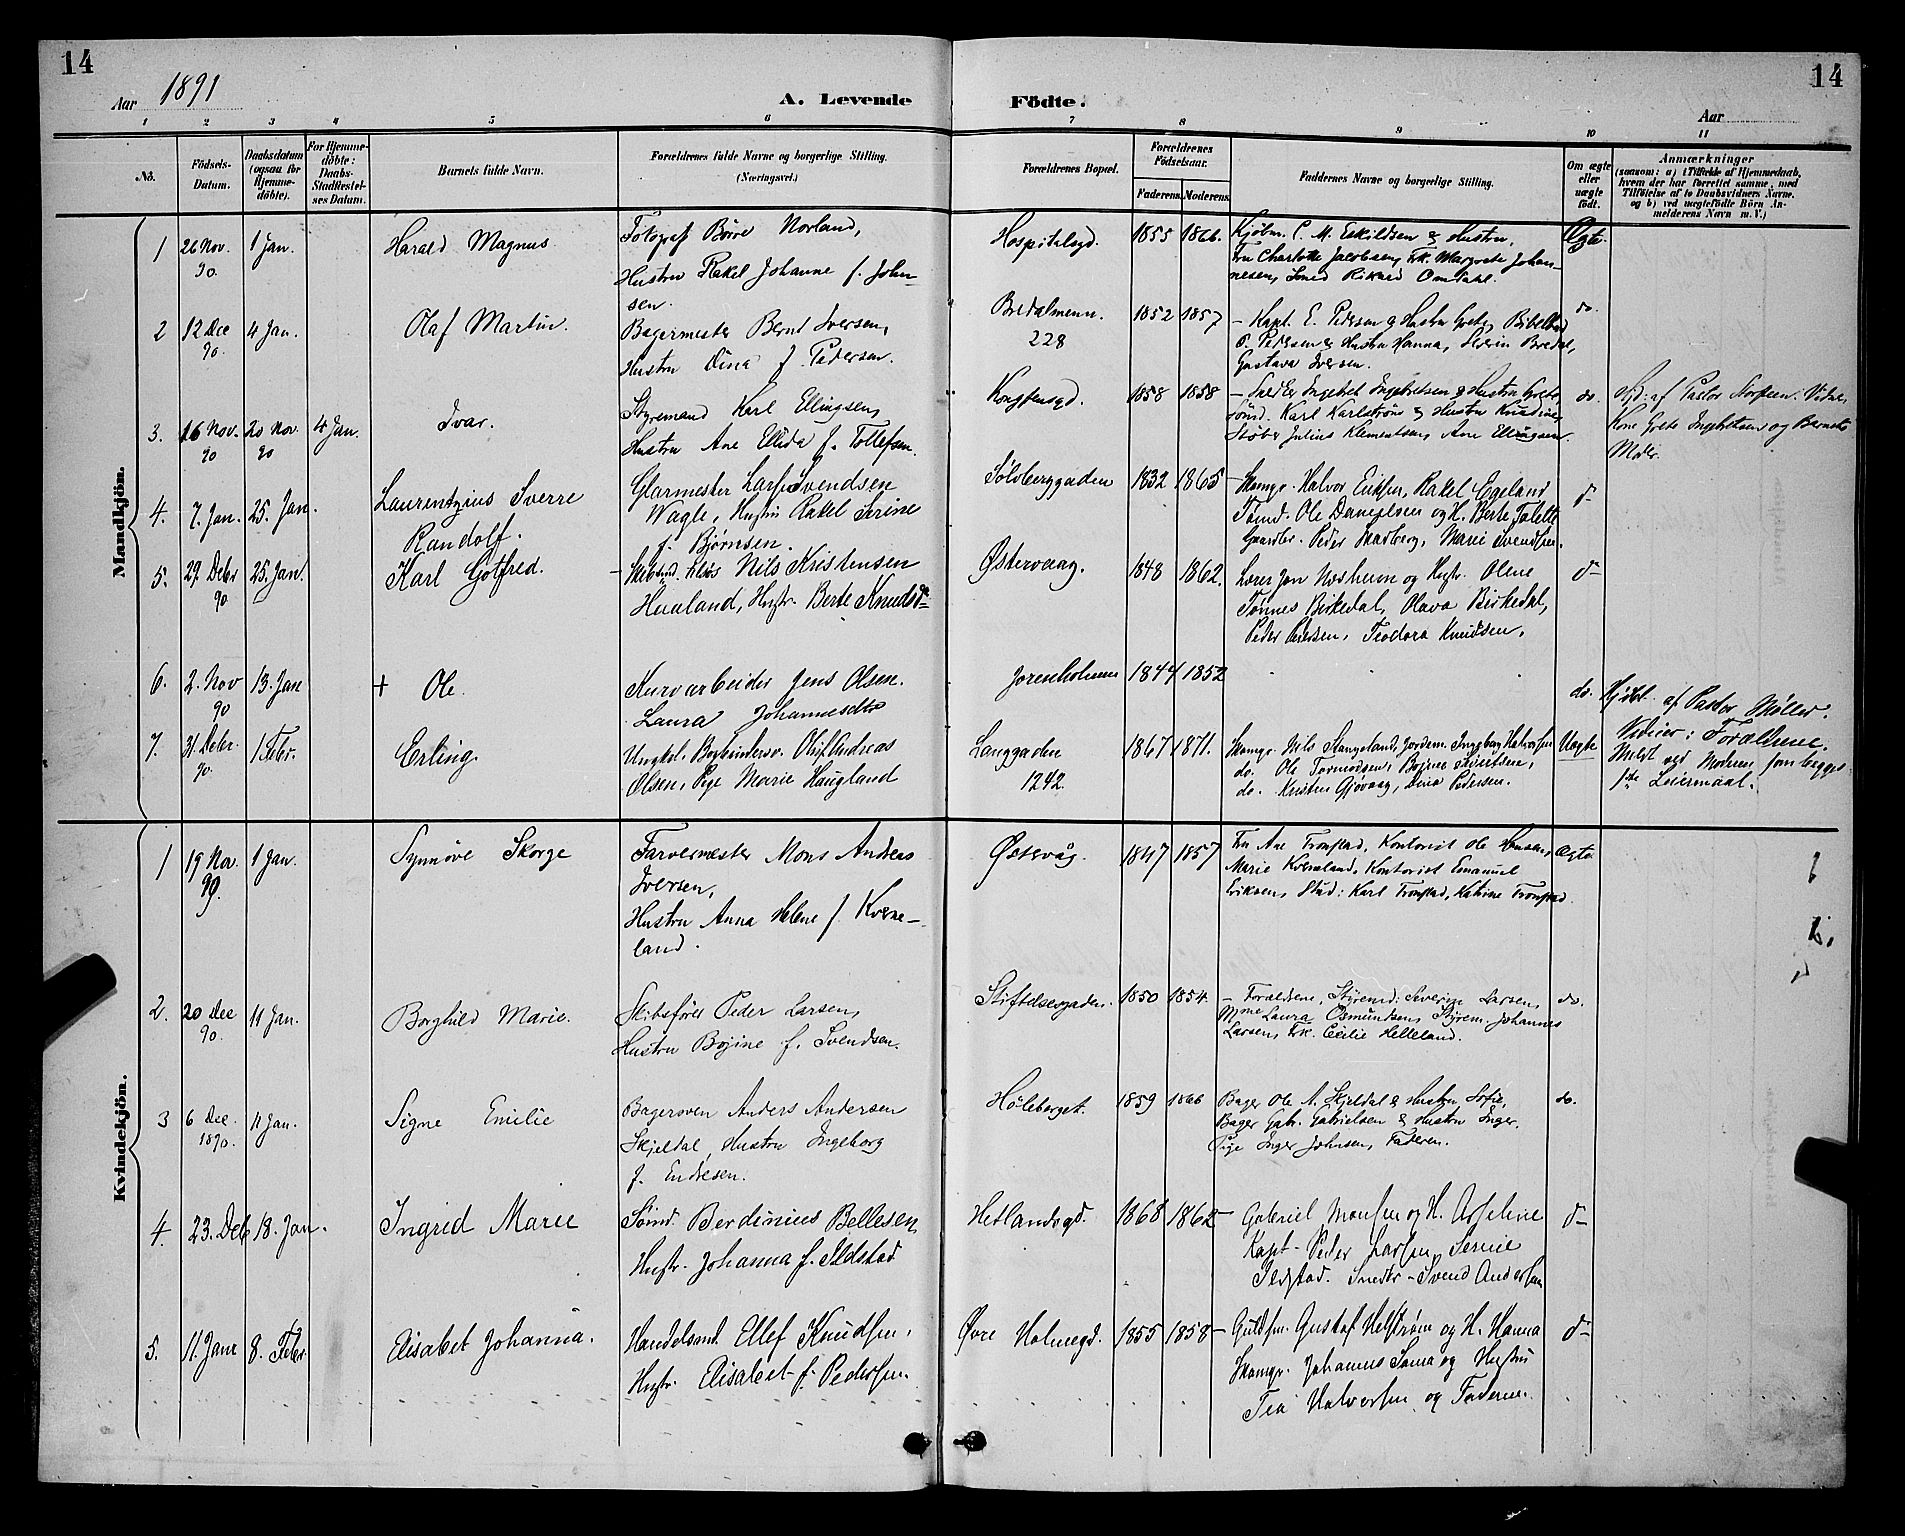 14
14
Aar 1891
A. Levende
Födte.
Aar
1 2 3 4 5 6 7 8 9 10 11
No.
Födsels-Datum.
Daabsdatum (ogsaa for Hjemmedöbte).
For Hjemmedöbte: Daabs-Stadfæstelses Datum.
Barnets fulde Navn.
Forældrenes fulde Navne og borgerlige Stilling. (Næringsvei.)
Forældrenes Bopæl.
Forældrenes Födselsaar.
Faderens. Moderens.
Faddernes Navne og borgerlige Stilling.
Om ægte eller uægte födt.
Anmærkninger
(saasom: a) i Tilfælde af Hjemmedaab, hvem der har forrettet samme, med Tilföielse af to Daabsvidners Navne, og b) ved uegtefödte Börn Anmelderens Navn m. V.)
Mandkjön.
1 26 Nov. 90. 1 Jan. Harald Magnus
Fotograf Börre Norland,
Hustru Rakel Johanne f. Johansen.
Hospitalsgd. 1855 1866.
Kjöbm. C. M. Eskildsen & Hustru,
Fru Charlotte Jacobsen, Frk. Margrete Johannesen, Smed Rikard Omdahl.
Ægte.
2 12 Dec 90. 4 Jan. Olaf Martin.
Bagermester Bernt Iversen,
Hustru Dina f. Pedersen.
Bredalmenn. 228 1852 1857
– Kapt. E. Pedersen & Hustru Grete, Bibelbud
O. Pedersen & Hustru Hanna, Severin Bredal,
Gustava Iversen.
do.
3. 16 Nov. 90 20 Nov. 90 4 Jan. Ivar.
Styremand Karl Ellingsen,
Hustru Ane Ellida f. Tollefsen.
Kongstensgd. 1858 1858
– Snedker Ingebret Ingebretsen & Hustru Grete,
Sömd. Karl Karlström & Hustru Kristine,
Støber Julius Klementsen, Ane Ellingsen.
do.
Hjd. af Pastor
Kone Grete Ingebretsen og Barnets
Moder.
4. 7. Jan. 25. Jan. Laurentzius Sverre
Randolf.
Glarmester Lars Svendsen
Wagle, Hustru Rakel Serine
f. Bjørnsen.
Sølvberggaden 1832 1865
– Skomgr. Halvor Eriksen, Rakel Egeland
Tømd. Ole Danielsen og H. Berte Talette
Gaardbr. Peder Skadberg, Marie Svendsen.
d–
5. 29. Debr 90 25. Jan. Karl Gotfred.
Nils Kristensen
Hualand, Hustr. Berte Knudsd.
Østervaag. 1848 1862.
Lærer Jon Nosheim og Hustr. Olene
Tønnes Birkedal, Olava Birkedal,
Peder Pedersen, Teodora Knudsen.
d–
6. 2. Nov 90 13. Jan + Ole.
Kurvarbeider Jens Olsen.
Laura Johannesdtr
Jorenholmen 1844 1852
do. Hjdbt. af Pastor Møller.
Vidner: Forældrene.
7. 31 Debr. 90. 1 Febr. Erling.
Ungkal. Olaf Andreas
Olsen, Pige Marie Haugland
Langgaden 1242. 1867 1871.
Skomgr. Nils Stangeland, Jordem. Ingeborg Halvorsen
do. Ole Tormodsen, Bojine Sivertsen,
do. Kristen Gjövaag, Dina Pedersen.
Uægte
Meldt ved Moderen som begges
1ste Leiermaal.
Kvindekjön.
1 19 Nov. 90. 1 Jan. Synnöve Skorge
Farvermester Mons Andreas
Iversen,
Hustru Anna Helene f. Kverneland.
Østervåg. 1847 1857
Fru Ane Tronstad, Kontorist Ole Hansen,
Marie Kverneland, Kontorist Emanuel
Eriksen, Stud: Karl Tronstad, Katrine Tronstad.
Ægte
2. 20 Dec 90. 11 Jan. Borghild Marie.
Skibsförer Peder Larsen,
Hustru Bojine f. Svendsen.
Stiftelsesgaden. 1850 1854.
– Forældrene, Styremd: Severin Larsen,
Mme Laura Osmundsen, Styrem. Johannes
Larsen, Frk. Cecilie Helleland.
do.
3 6 Dec. 1890. 11 Jan. Signe Emilie
Bagersven Anders Andersen
Skjeldal, Hustru Ingeborg
f. Endresen.
Höleberget. 1859 1866
Bager Ole A. Skjeldal & Hustru Sofie,
Bager Gabr. Gabrielsen & Hustru Inger.
Pige Inger Johnsen, Faderen.
do.
4. 23. Deb 18. Jan. Ingrid Marie
Sömd. Berdinius Bellesen
Hustr. Johanna f. Ildstad
Hetlandsgd. 1868 1862
– Gabriel Monsen og H. Asseline
Kapt– Peder Larsen, Serine
Ildstad. Snedkr– Svend Andersen
d–
5. 11. Janr 8. Febr. Elisabet Johanna.
Handelsmd. Ellef Knudsen,
Hustr. Elisabeet f. Pedersen.
Øvre Holmegd. 1855 1858
– Guldsm. Gustaf Helström og H. Hanna
Skomgr. Johannes Soma og Hustru
Tea Halvorsen og Faderne.
d–